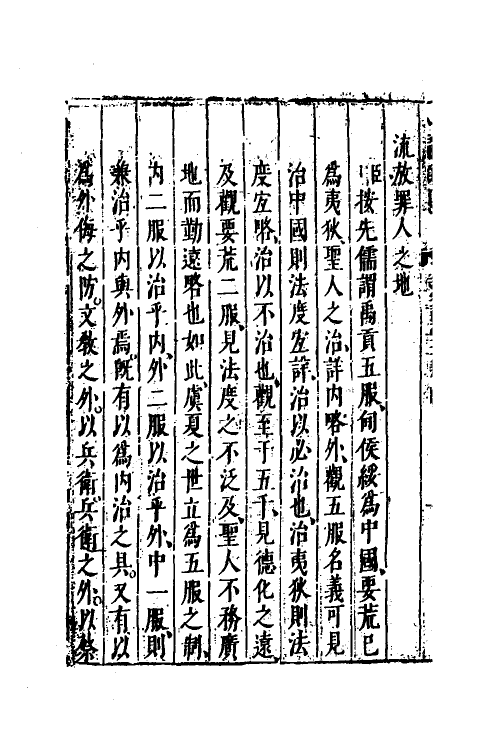 流放罪人之地
按先儒謂禹貢五服甸侯綏為中國要荒已
為夷狄聖人之治詳内略外觀五服名義可見
治中國則法度宜詳治以必治也治夷狄則法
度宜略治以不治也觀至于五千見德化之遠
及觀要荒二服見法度之不泛及聖人不務廣
地而勤遠略也如此虞夏之世立為五服之制
内二服以治乎内外二服以治乎外中一服則
兼治乎内與外焉既有以為内治之具又有以
為外侮之防文教之外以兵衛兵衛之外以蔡